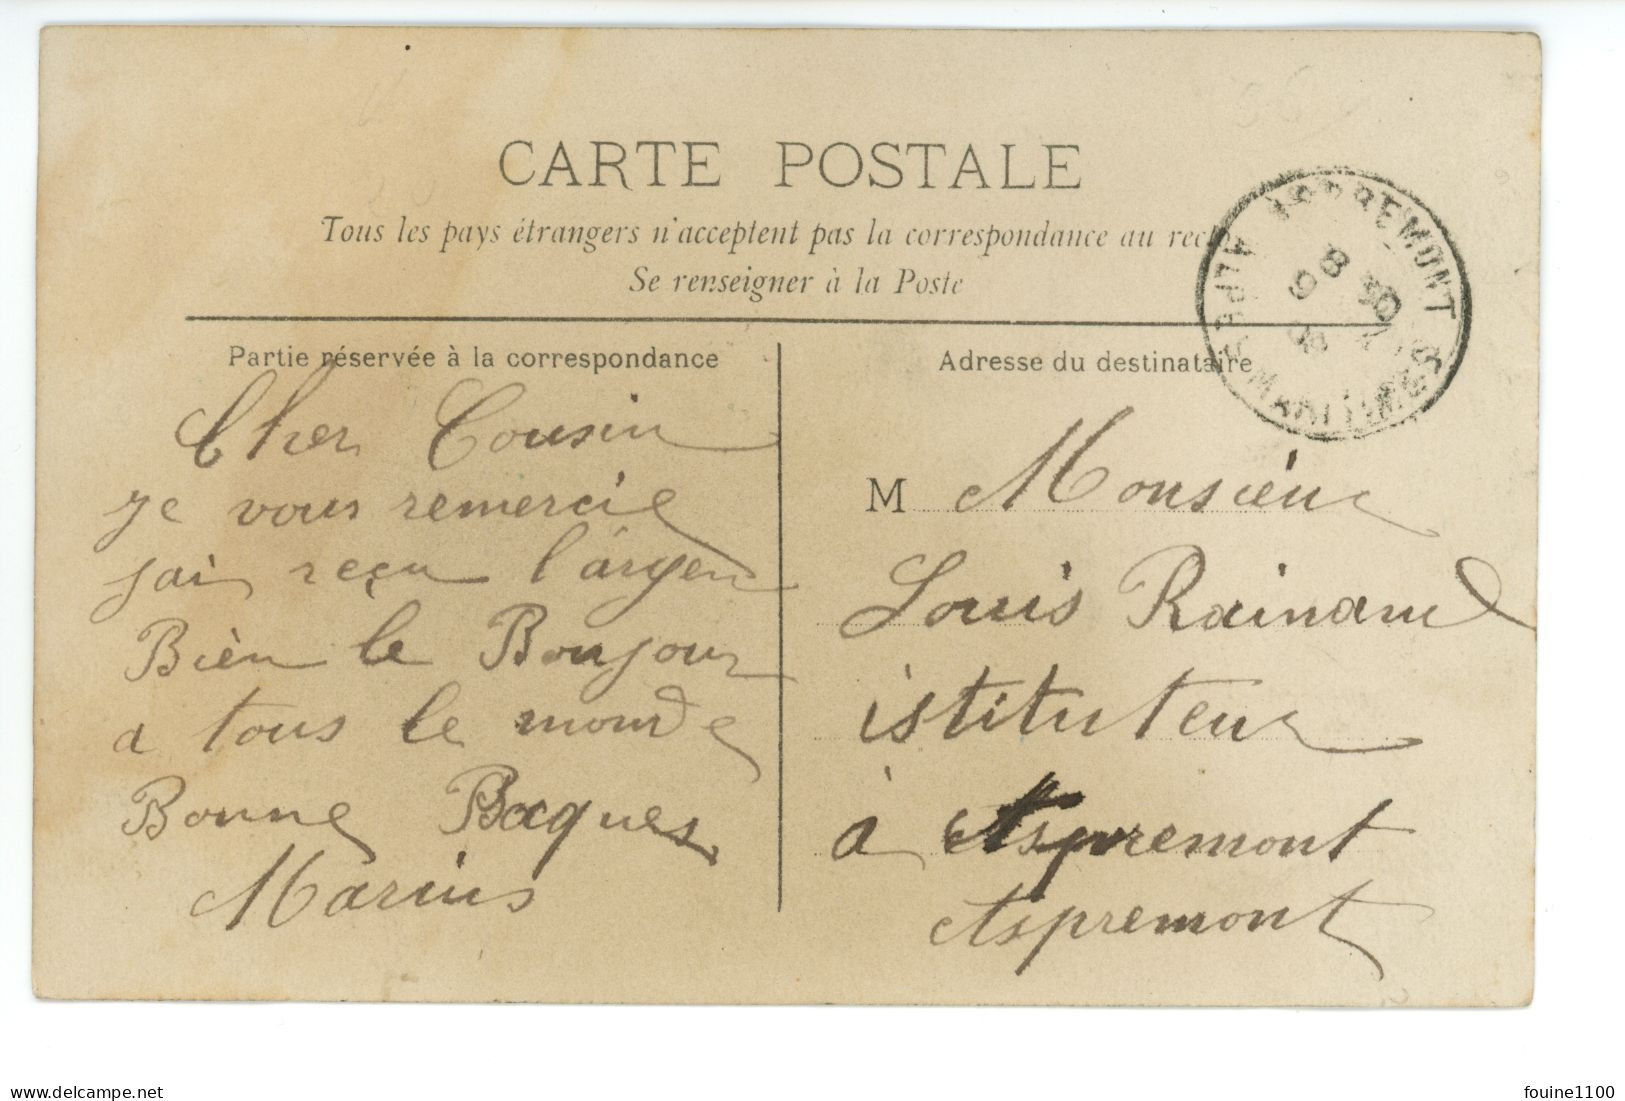 CARTE POSTALE
Tous les pays étrangers n'acceptent pas la correspondance au recto
Se renseigner à la Poste
ASPREMONT
ALPES MARITIMES
8 30
9
Partie réservée à la correspondance
Cher Cousin
je vous remercie
jai reçu l'argen
Bièn le Bonjour
a tous le monde
Bonne Paques
Marius
Adresse du destinataire
M Monsieur
Louis Rainaud
istituteur
à Aspremont
Aspremont
delcampe.net
fouine1100